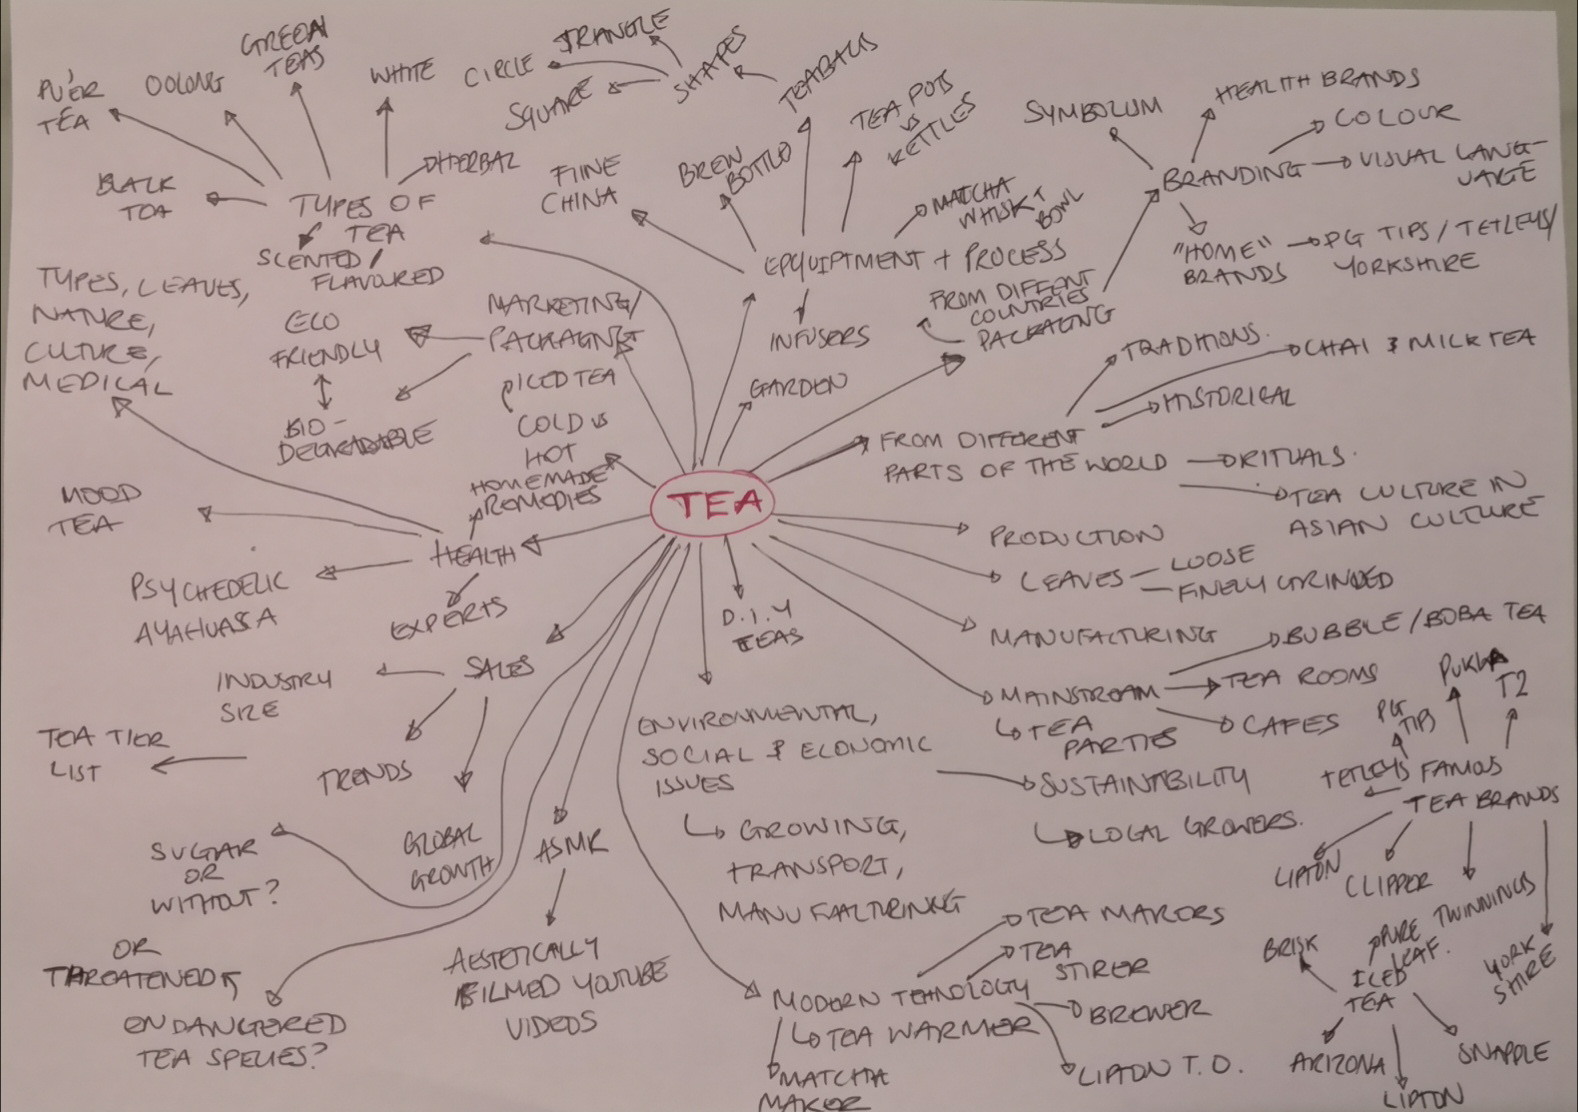 TEA
PU'ER
TEA
OOLONG
GREEN
TEAS
WHITE
HERBAL
BLACK
TEA
TYPES OF
TEA
SCENTED /
FLAVOURED
CIRCLE
TRANGLE
SQUARE
SHAPES
TEABAGS
TEA POTS
VS
KETTLES
FIINE
CHINA
BREW
BOTTLE
MATCHA
WHISK +
BOWL
EPQUIPTMENT + PROCESS
INFUSERS
GARDEN
FROM DIFFENT
COUNTRIES
PACKAGING
SYMBOLISM
HEALTH BRANDS
COLOUR
BRANDING
VISUAL LANG-
UAGE
"HOME"
BRANDS
PG TIPS / TETLEYS/
YORKSHIRE
TYPES, LEAVES,
NATURE,
CULTURE,
MEDICAL
ECO
FRIENDLY
BIO-
DEGRADABLE
MARKETING/
PACKAGING
ICED TEA
COLD VS
HOT
HOMEMADE
REMEDIES
TRADITIONS.
CHAI & MILK TEA
HISTORICAL
FROM DIFFERENT
PARTS OF THE WORLD
RITUALS.
TEA CULTURE IN
ASIAN CULTURE
MOOD
TEA
HEALTH
PSYCHEDELIC
AYAHUASA
EXPERTS
PRODUCTION
LEAVES
LOOSE
FINELY GRINDED
MANUFACTURING
D.I.Y
TEAS
SALES
INDUSTRY
SIZE
TEA TIER
LIST
TRENDS
GLOBAL
GROWTH
MAINSTREAM
BUBBLE / BOBA TEA
TEA ROOMS
CAFES
TEA
PARTIES
ENVIRONMENTAL,
SOCIAL & ECONOMIC
ISSUES
SUSTAINABILITY
LOCAL GROWERS.
GROWING,
TRANSPORT,
MANUFACTURINKG
PUKKA
T2
PG
TIPS
TETLEYS
FAMOUS
TEA BRANDS
LIPTON
CLIPPER
TWINNINGS
YORK
SHIRE
SUGAR
OR
WITHOUT?
ASMR
AESTETICALLY
FILMED YOUTUBE
VIDEOS
OR
THREATENED
ENDANGERED
TEA SPECIES?
MODERN TEHNOLOGY
TEA MAKERS
TEA
STIRER
BREWER
TEA WARMER
LIPTON T.O.
MATCHA
MAKER
BRISK
PURE
LEAF.
ICED
TEA
ARIZONA
LIPTON
SNAPPLE